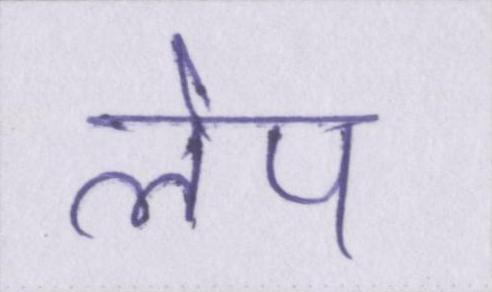 लेप